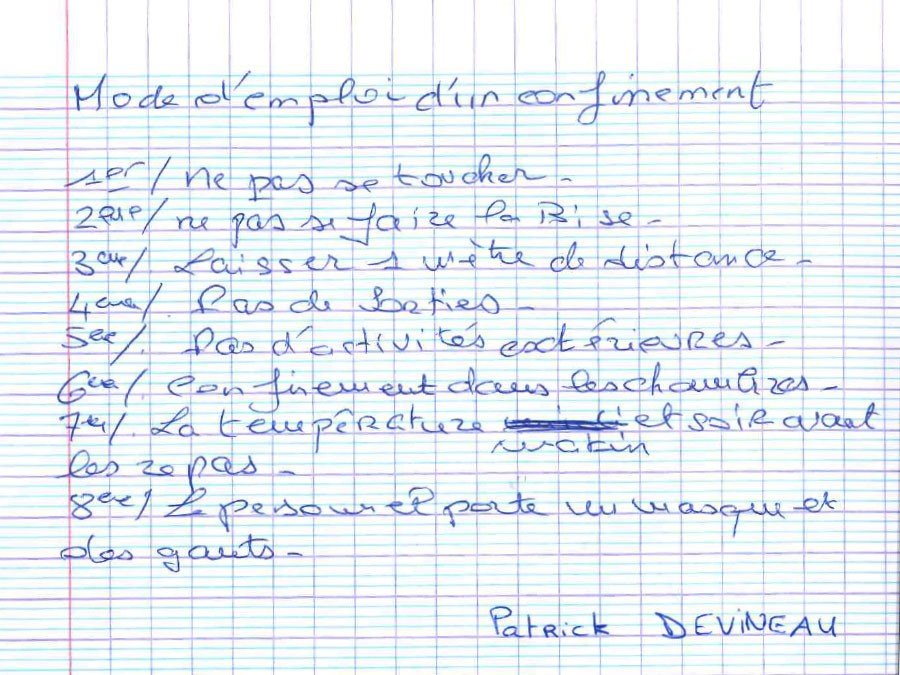 Mode d'emploi d'un confinement
1er/ ne pas se toucher -
2eme/ ne pas se faire la Bise -
3eme/ Laisser 1 mètre de distance -
4eme/. Pas de Sorties -
5eme/. Pas d'activités extérieures -
6eme/ Confinement dans les chambres -
7eme/. La température et soir avant
matin
les repas -
8eme/ Le personnel porte un masque et
des gants -
Patrick DEVINEAU